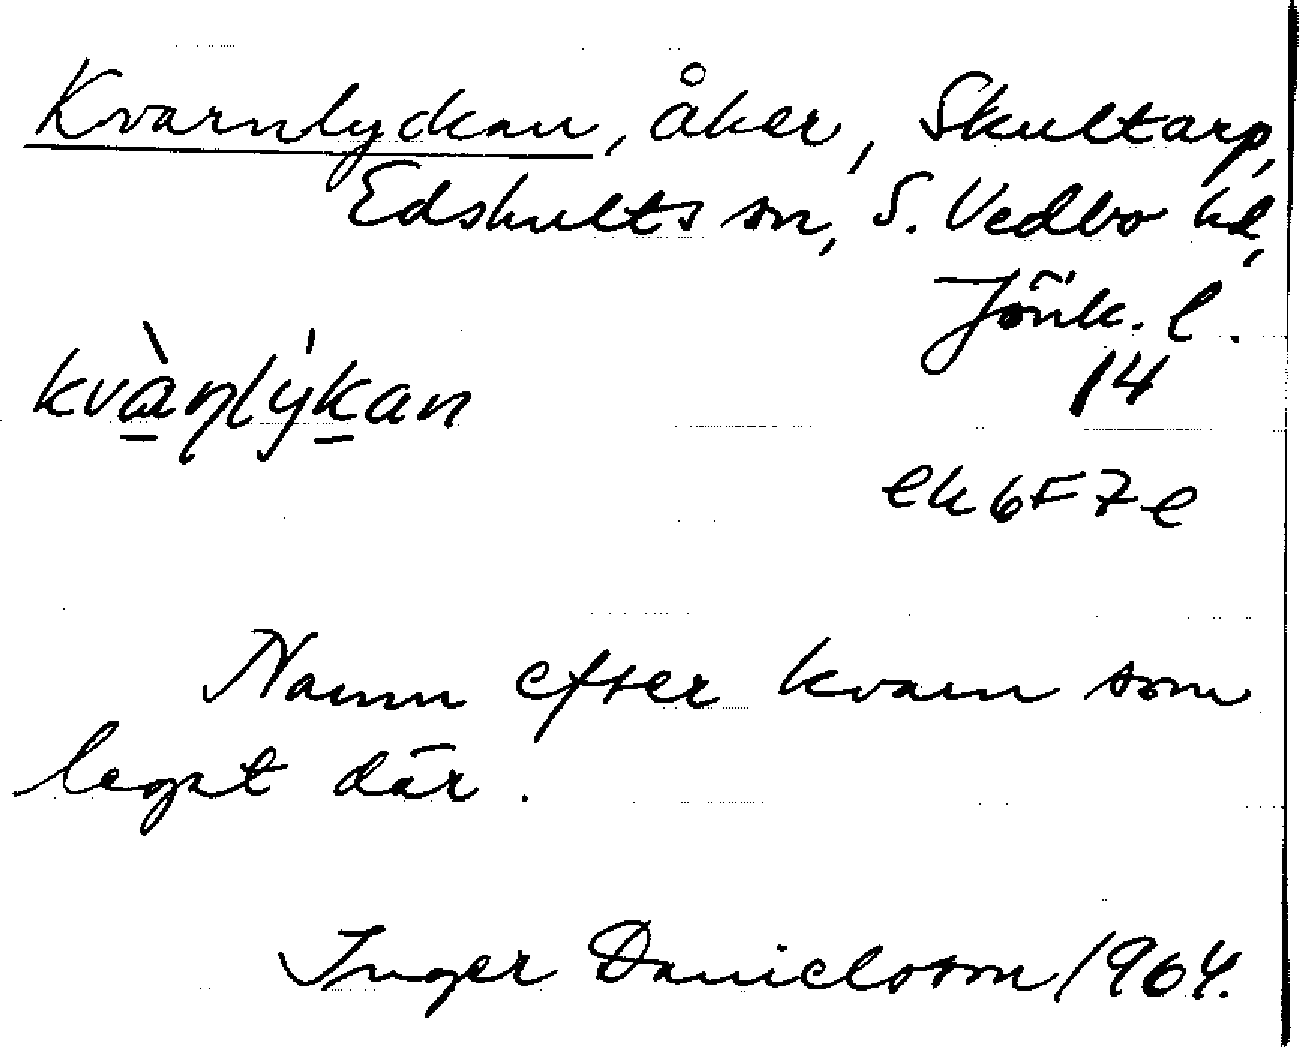 Kvarnlyckan, åker, Skultarp,
Edshults sn, S. Vedbo hd,
Jönk. l.
kvàɳlýkan
14
ek 6F7e
Namn efter kvarn som
legat där.
Inger Danielsson 1964.